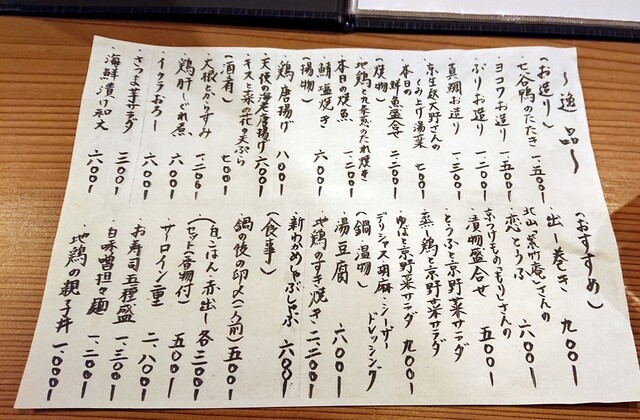 〜逸品〜
(お造り)
・七谷鴨のたたき 一.五〇〇
・ヨコワお造り 一.五〇〇
・ぶりお造り 一.二〇〇
・真鯛お造り 一.三〇〇
・京生麩大野さんの
くみ上げ湯葉 七〇〇
・本日の鮮魚盛合せ
(焼物)
・地鶏九条葱のたれ焼き
・本日の焼魚 一.二〇〇
・鯖塩焼き 六〇〇
(揚物)
・鶏唐揚げ 八〇〇
・天使の海老唐揚げ 六〇〇
・キスと菜の花の天ぷら 七〇〇
(酒肴)
・大根とからすみ 一.二〇〇
・鶏肝しぐれ煮 六〇〇
・イクラおろし 六〇〇
・さつま芋サラダ 三〇〇
・海鮮漬け和え 六〇〇
(おすすめ)
・出し巻き 九〇〇
・北山「紫竹庵」さんの
恋とうふ 六〇〇
・京つけもの「もり」さんの
漬物盛合せ 五〇〇
・とうふと京野菜サラダ
・蒸し鶏と京野菜サラダ
・ゆばと京野菜サラダ 九〇〇
デリシャス胡麻・シーザー
ドレッシング
(鍋・温物)
・湯豆腐 六〇〇
・地鶏のすき焼き 二.二〇〇
・新わかめしゃぶしゃぶ 六〇〇
(食事)
・鍋の後の〆(一人前) 五〇〇
・(白ごはん・赤出し各三〇〇
セット(香物付) 五〇〇
・サーロイン重 二.八〇〇
・お寿司五種盛 一.三〇〇
・白味噌担々麺 一.二〇〇
・地鶏の親子丼 一.〇〇〇